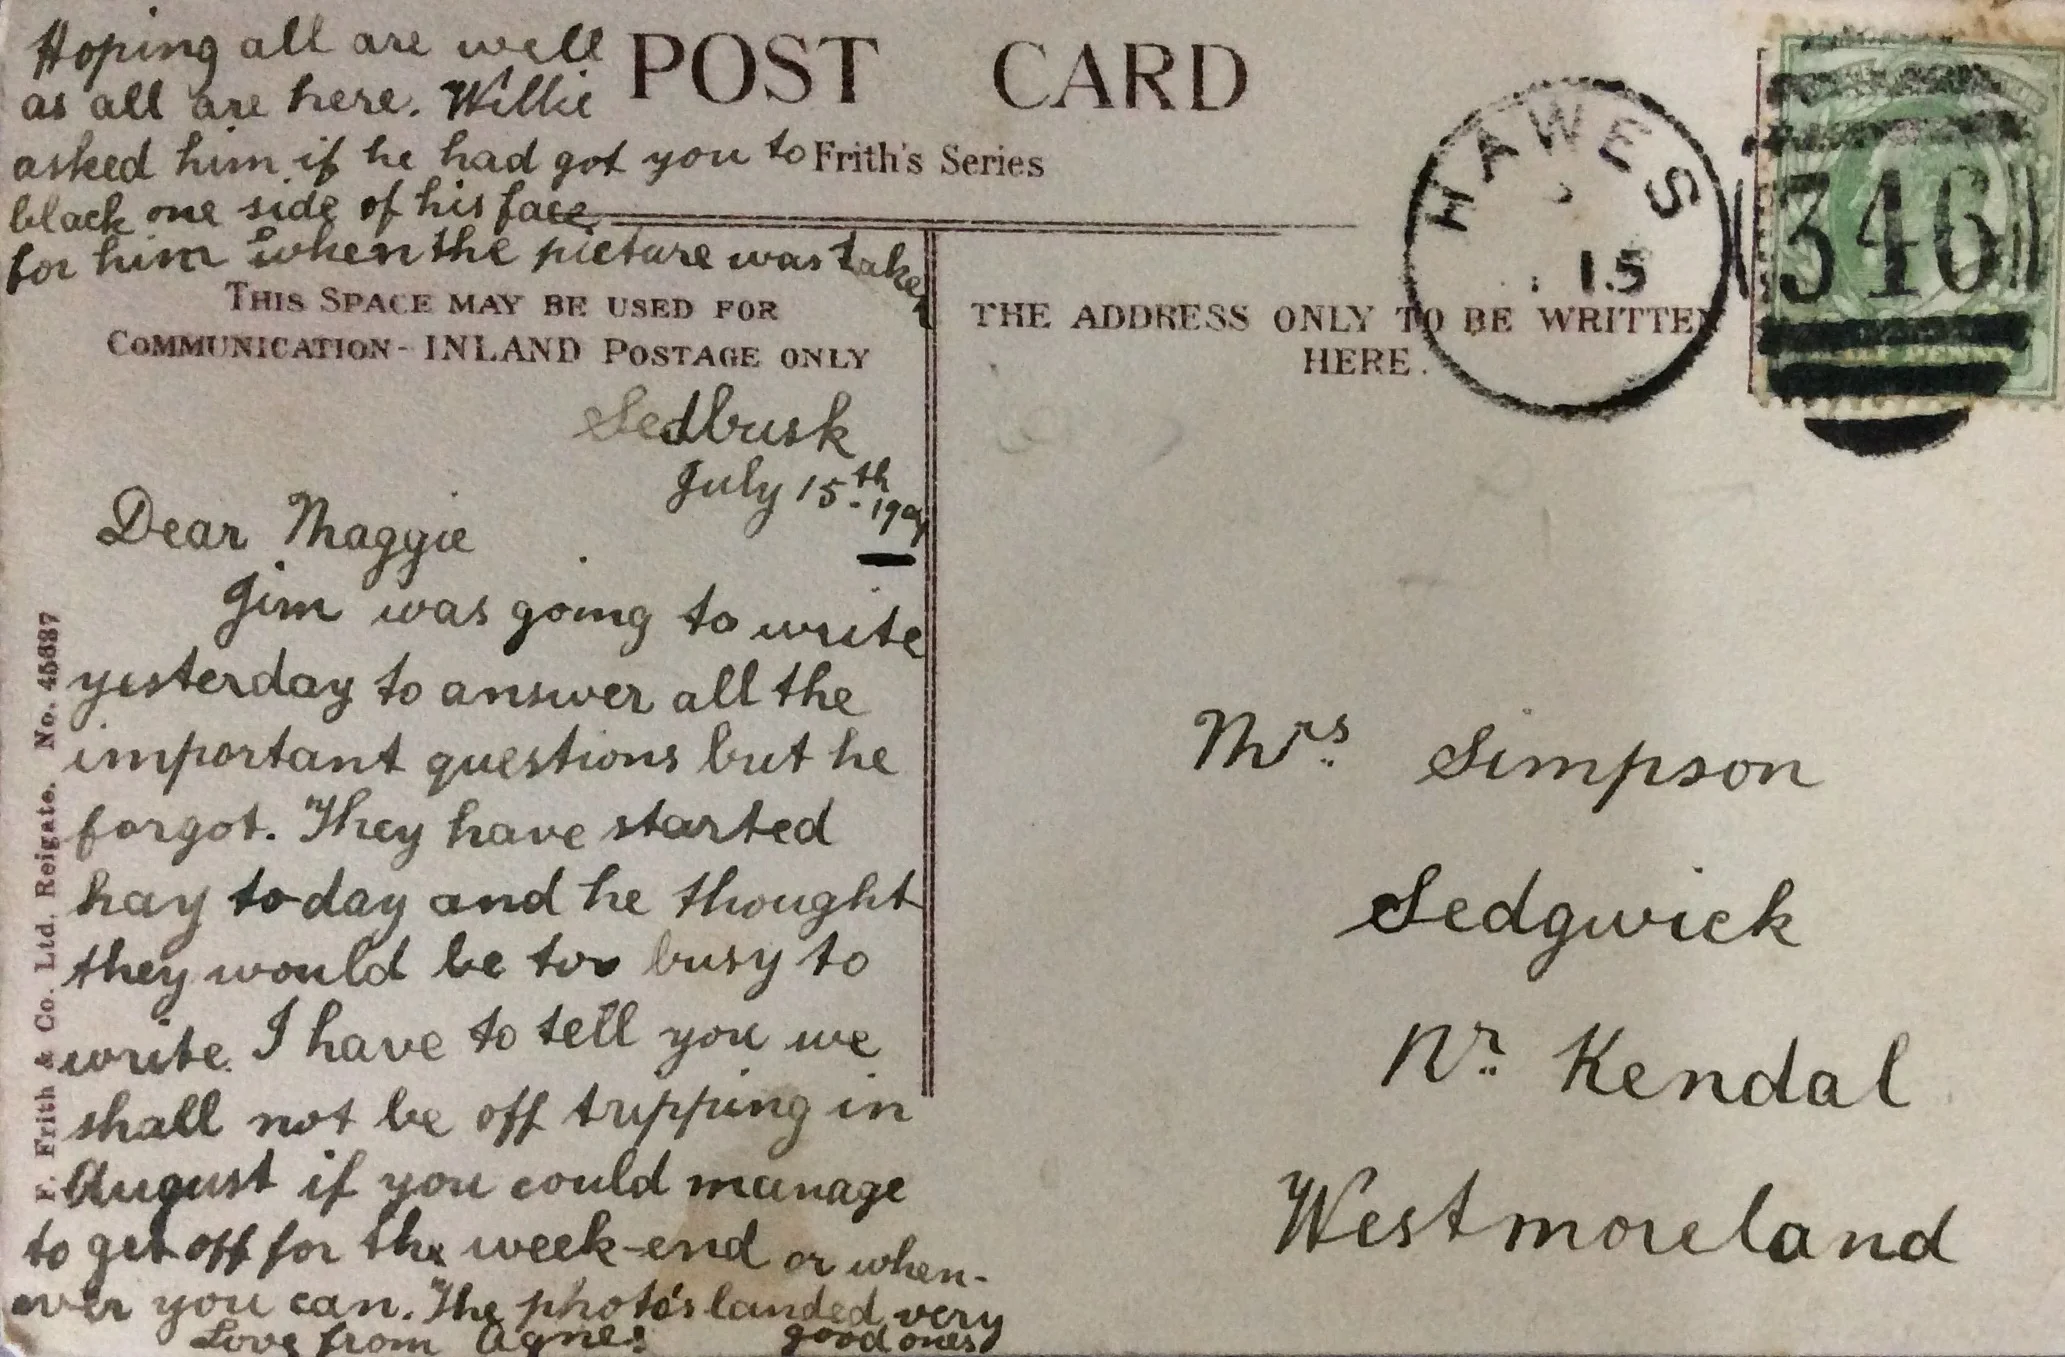 Hoping all are well
as all are here. Willie
asked him if he had got you to
black one side of his face
for him when the picture was taken
POST CARD
Frith's Series
THIS SPACE MAY BE USED FOR
COMMUNICATION - INLAND POSTAGE ONLY
Sedbusk
July 15th
Dear Maggie
Jim was going to write
yesterday to answer all the
important questions but he
forgot. They have started
hay to-day and he thought
they would be too busy to
write. I have to tell you we
shall not be off tripping in
August if you could manage
to get off for the week-end or when-
ever you can. The photo's landed very
good ones
Love from Agnes
F. Frith & Co. Ltd. Reigate. No. 45637
THE ADDRESS ONLY TO BE WRITTEN
HERE.
HAWES
15
346
Mrs. Simpson
Sedgwick
Nr. Kendal
Westmoreland